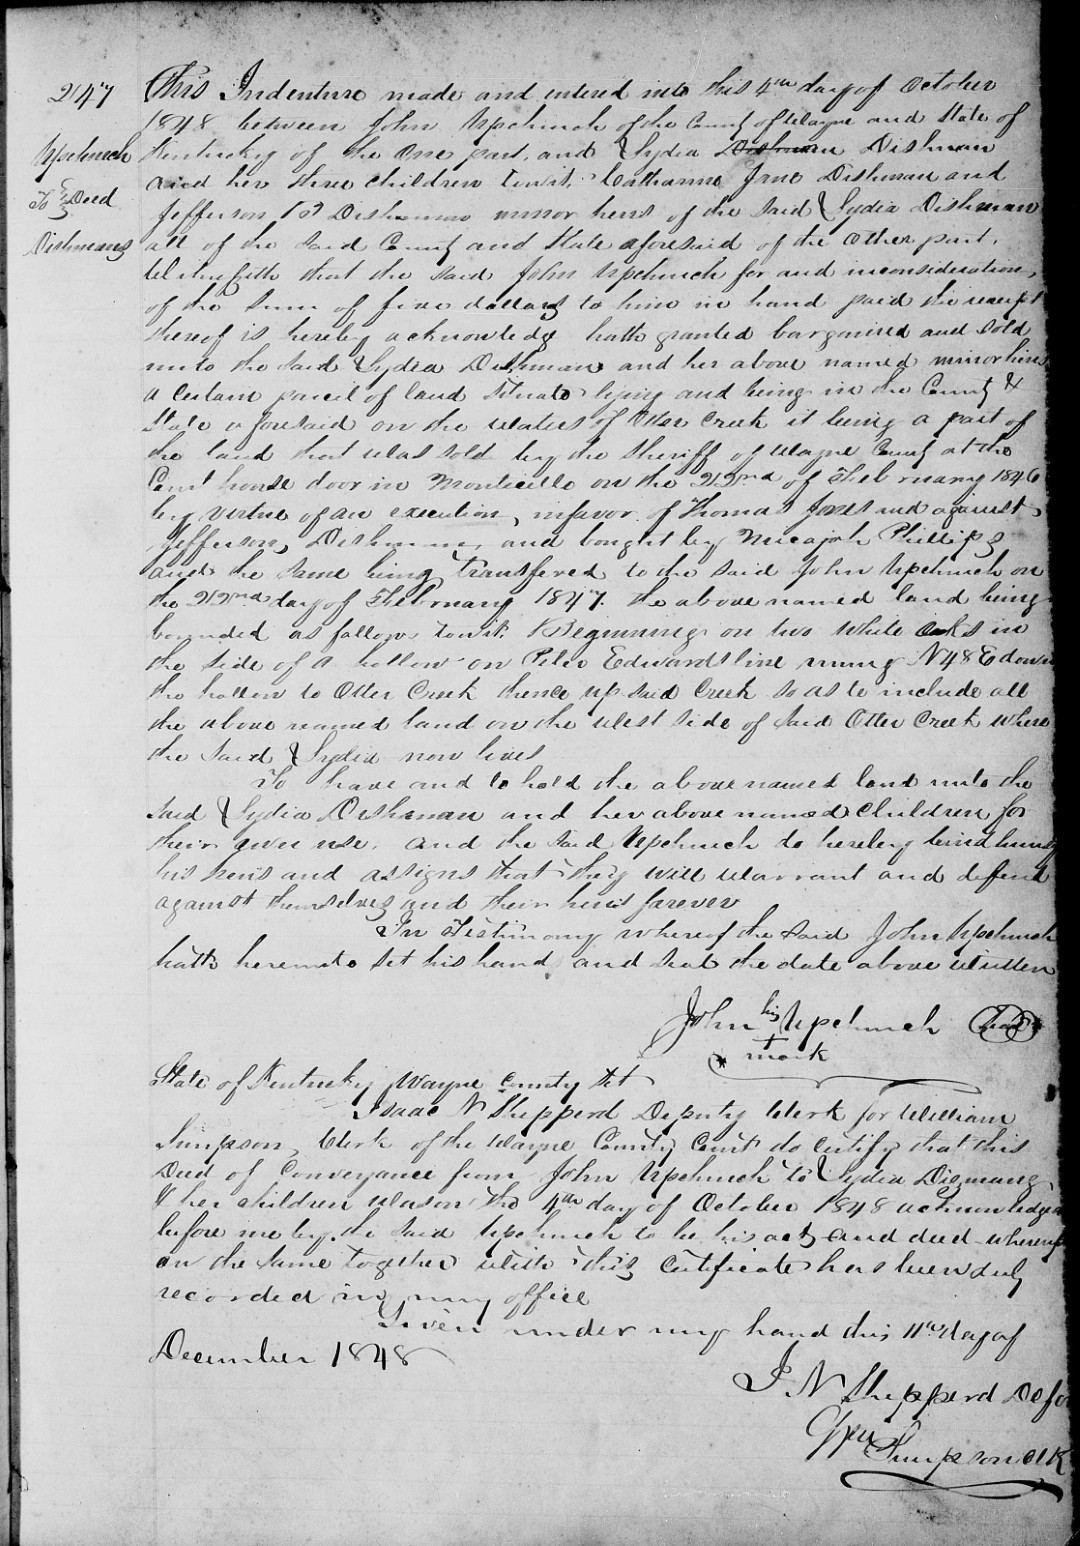 247
Upchurch
To } Deed
Dishmans
This Indenture made and entered into this 4th day of October
1848 between John Upchurch of the County of Wayne and State of
Kentucky of the One part, and Lydia Dishman Dishman
and her three children towit, Catharine Jane Dishman and
Jefferson Dishman minor heirs of the said Lydia Dishman
all of the said County and State aforesaid of the other part.
Witnesseth that the said John Upchurch for and inconsideration,
of the sum of five dollars to him in hand paid the receipt
thereof is hereby acknowledge hath granted bargained and sold
unto the said Lydia Dishman and her above named minor heirs
a certain parcel of land situate lying and being in the County &
State aforesaid on the waters of Otter Creek it being a part of
the land that was sold by the Sheriff of Wayne County at the
Court house door in Monticello on the 22nd of February 1846
by virtue of an execution, infavor of Thomas Jones and against
Jefferson Dishman and bought by Micajah Phillips
and the same being transfered to the said John Upchurch on
the 22nd day of February 1847. the above named land being
bounded as follows towit. Beginning on two white oaks in
the side of a hollow on Peter Edwards line runing N48E down
the hollow to Otter Creek thence up said Creek so as to include all
the above named land on the West side of said Otter Creek where
the said Lydia now lives
To have and to hold the above named land unto the
said Lydia Dishman and her above named children for
their own use. and the said Upchurch do hereby bind himself
his heirs and assigns that they will warrant and defend
against themselves and their heirs forever
In Testimony whereof the said John Upchurch
hath hereunto set his hand and seal the date above written
John his Upchurch Seal
+
mark
State of Kentucky Wayne County Sct
Isaac N Shepperd Deputy Clerk for William
Simpson, Clerk of the Wayne County Court do certify that this
Deed of Conveyance from John Upchurch to Lydia Dismang
& her children was on the 4th day of October 1848 acknowledged
before me by the said Upchurch to be his act and deed whereup
on the same together with this certificate has been duly
recorded in my office
Given under my hand this 11th day of
December 1848
I N Shepperd DC for
Wm Simpson Clk